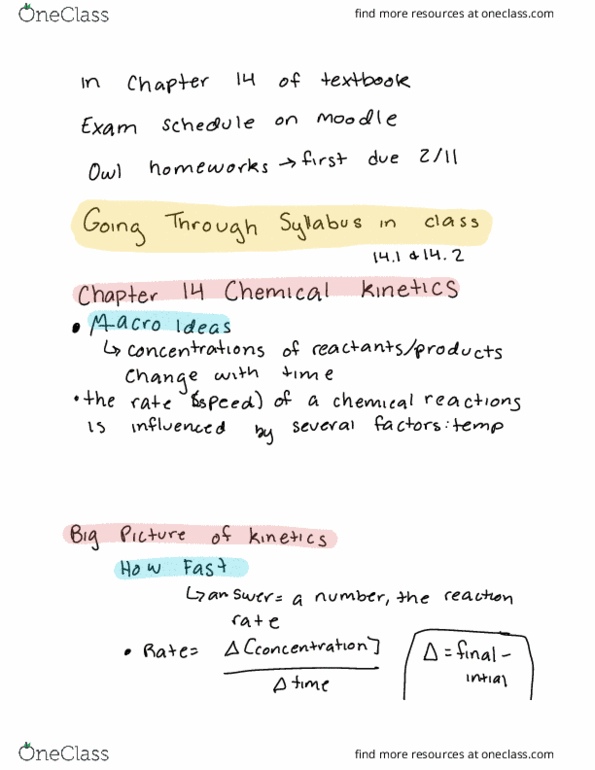 OneClass
find more resources at oneclass.com
in Chapter 14 of textbook
Exam schedule on moodle
Owl homeworks → first due 2/11
Going Through Syllabus in class
14.1 & 14.2
Chapter 14 Chemical kinetics
• Macro Ideas
↳ concentrations of reactants/products
change with time
• the rate (speed) of a chemical reactions
is influenced by several factors: temp
Big Picture of kinetics
How Fast
↳ answer = a number, the reaction
rate
• Rate = Δ[concentration]
Δ time
Δ = final -
intial
OneClass
find more resources at oneclass.com